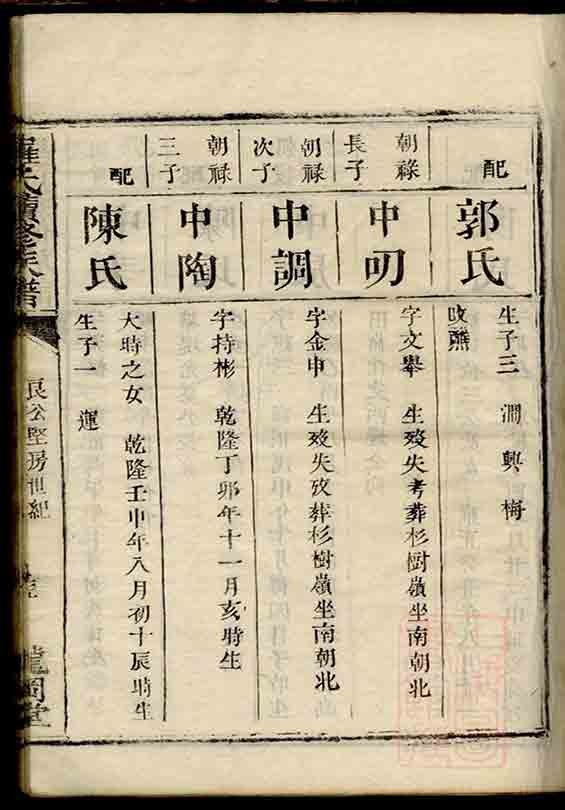 配
郭氏
生子三 澗 興 梅
攺醮
朝祿
長子
中叨
字文舉 生歿失考葬杉樹嶺坐南朝北
朝祿
次子
中調
字金申 生歿失攷葬杉樹嶺坐南朝北
朝祿
三子
中陶
字持彬 乾隆丁卯年十一月亥時生
配
陳氏
大時之女 乾隆壬申年八月初十辰時生
生子一 運
羅氏續修族譜
良公堅房世紀
龍岡堂